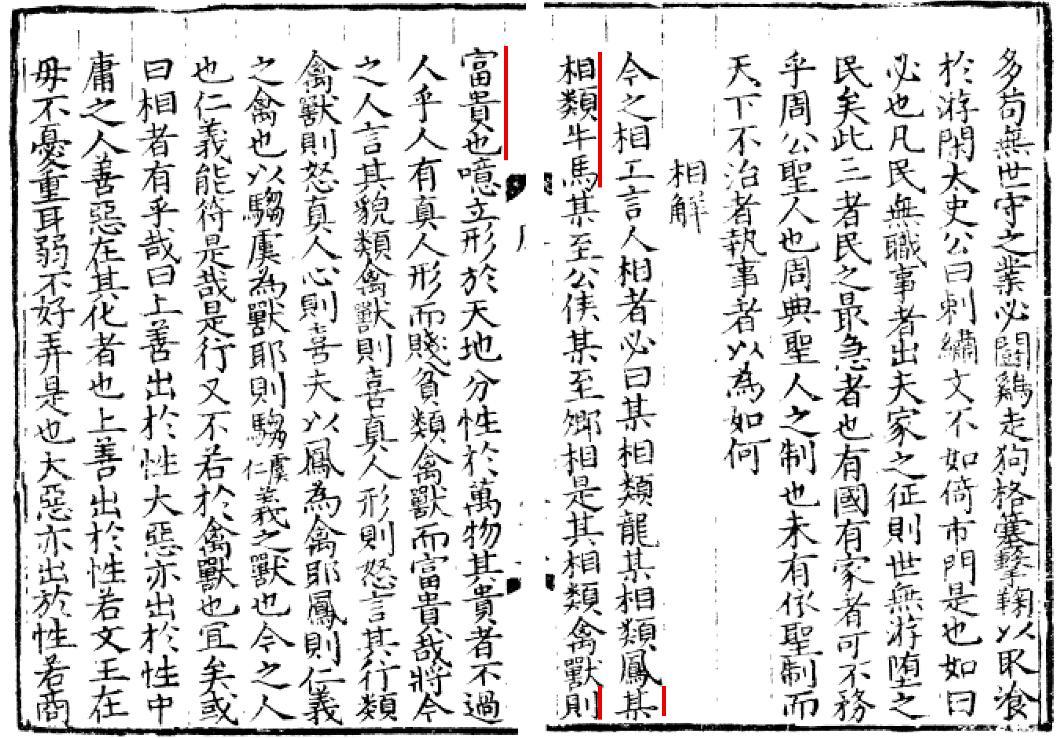 多苟無世守之業必鬪鷄走狗格塞擊鞠以取飡
於游閑太史公曰刺繡文不如倚市門是也如曰
必也凡民無職事者出夫家之征則世無游墮之
民矣此三者民之最急者也有國有家者可不務
乎周公聖人也周典聖人之制也未有依聖制而
天下不治者執事者以為如何
相解
今之相工言人相者必曰某相類龍某相類鳳某
相類牛馬某至公侯某至卿相是其相類禽獸則
富貴也噫立形於天地分性於萬物其貴者不過
人乎人有真人形而賤貧類禽獸而富貴哉將今
之人言其貌類禽獸則喜真人形則怒言其行類
禽獸則怒真人心則喜夫以鳳為禽耶鳳則仁義
之禽也以騶虞為獸耶則騶虞仁義之獸也今之人
也仁義能符是哉是行又不若於禽獸也宜矣或
曰相者有乎哉曰上善出於性大惡亦出於性中
庸之人善惡在其化者也上善出於性若文王在
毋不憂重耳弱不好弄是也大惡亦出於性若商